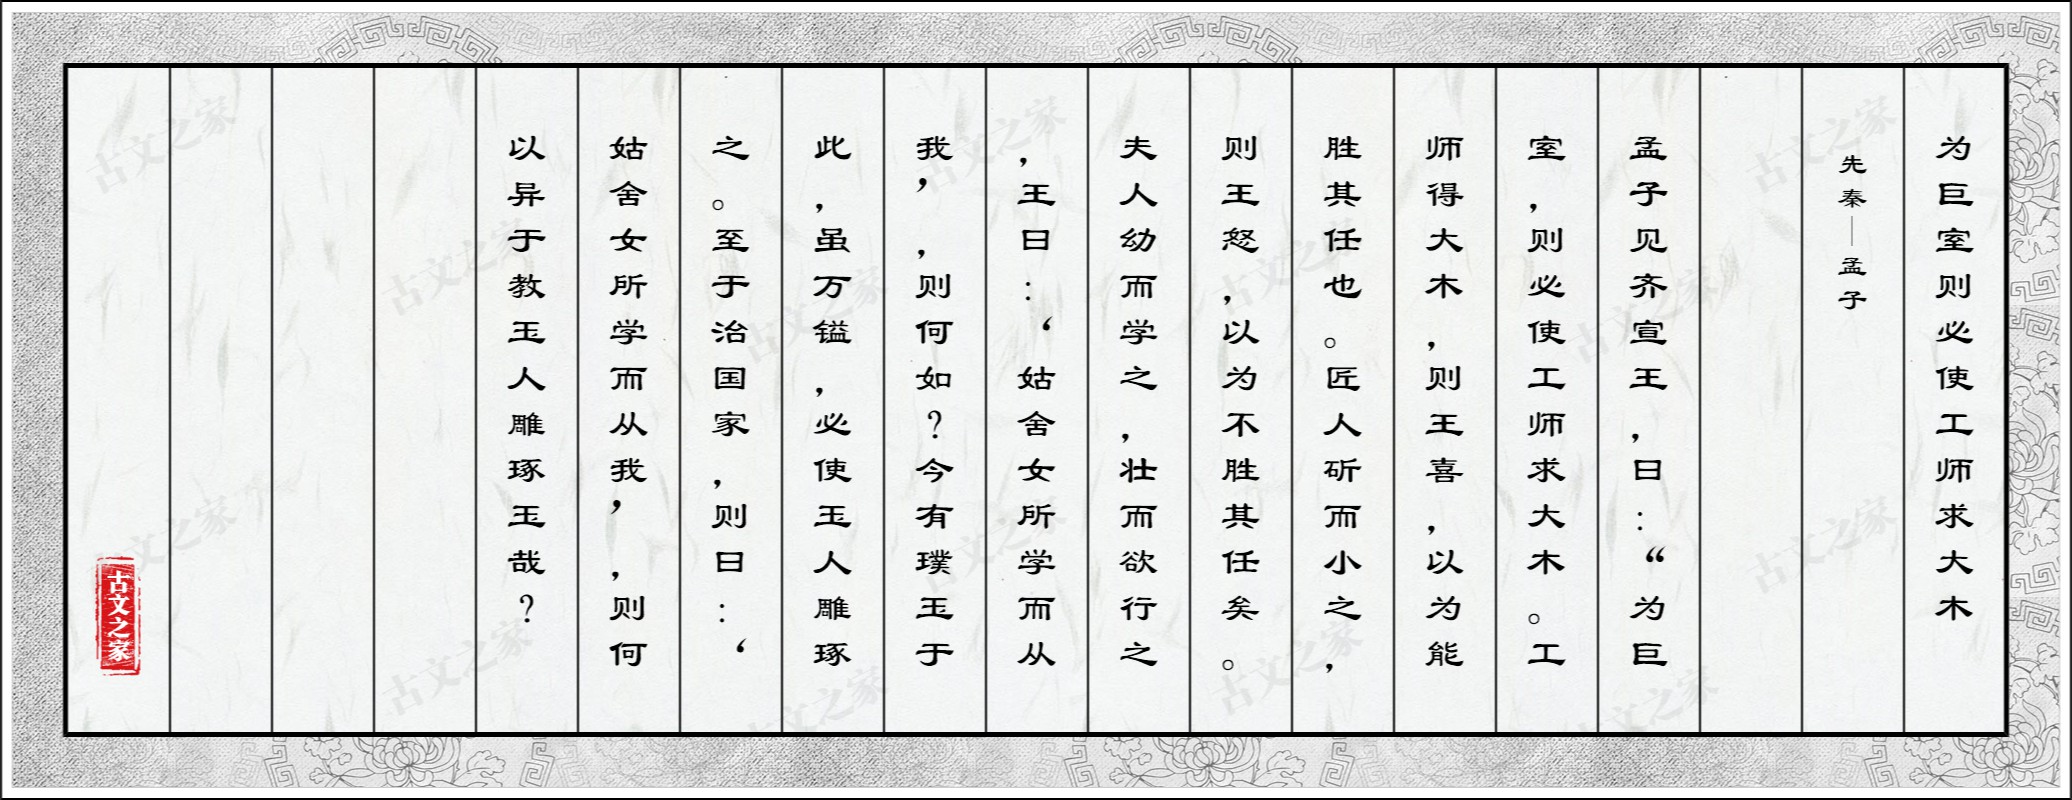 为巨室则必使工师求大木
先秦—孟子
孟子见齐宣王，曰：“为巨
室，则必使工师求大木。工
师得大木，则王喜，以为能
胜其任也。匠人斫而小之，
则王怒，以为不胜其任矣。
夫人幼而学之，壮而欲行之
，王曰：‘姑舍女所学而从
我’，则何如？今有璞玉于
此，虽万镒，必使玉人雕琢
之。至于治国家，则曰：‘
姑舍女所学而从我’，则何
以异于教玉人雕琢玉哉？
古文之家